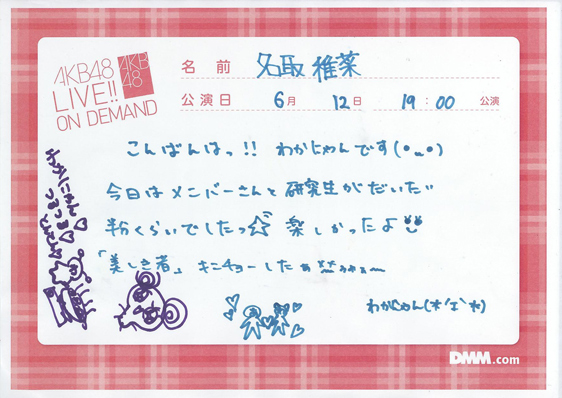 AKB48
LIVE!!
ON DEMAND
AKB
48
名 前 名取 稚菜
公演日 6月 12日 19:00 公演
こんばんはっ!! わかにゃんです(•ᴗ•)
今日はメンバーさんと研究生がだいたい
半分くらいでしたっ☆ 楽しかったよ
「美しき者」キンチョーしたぁ
わかにゃん(*'ェ'*)
DMM.com